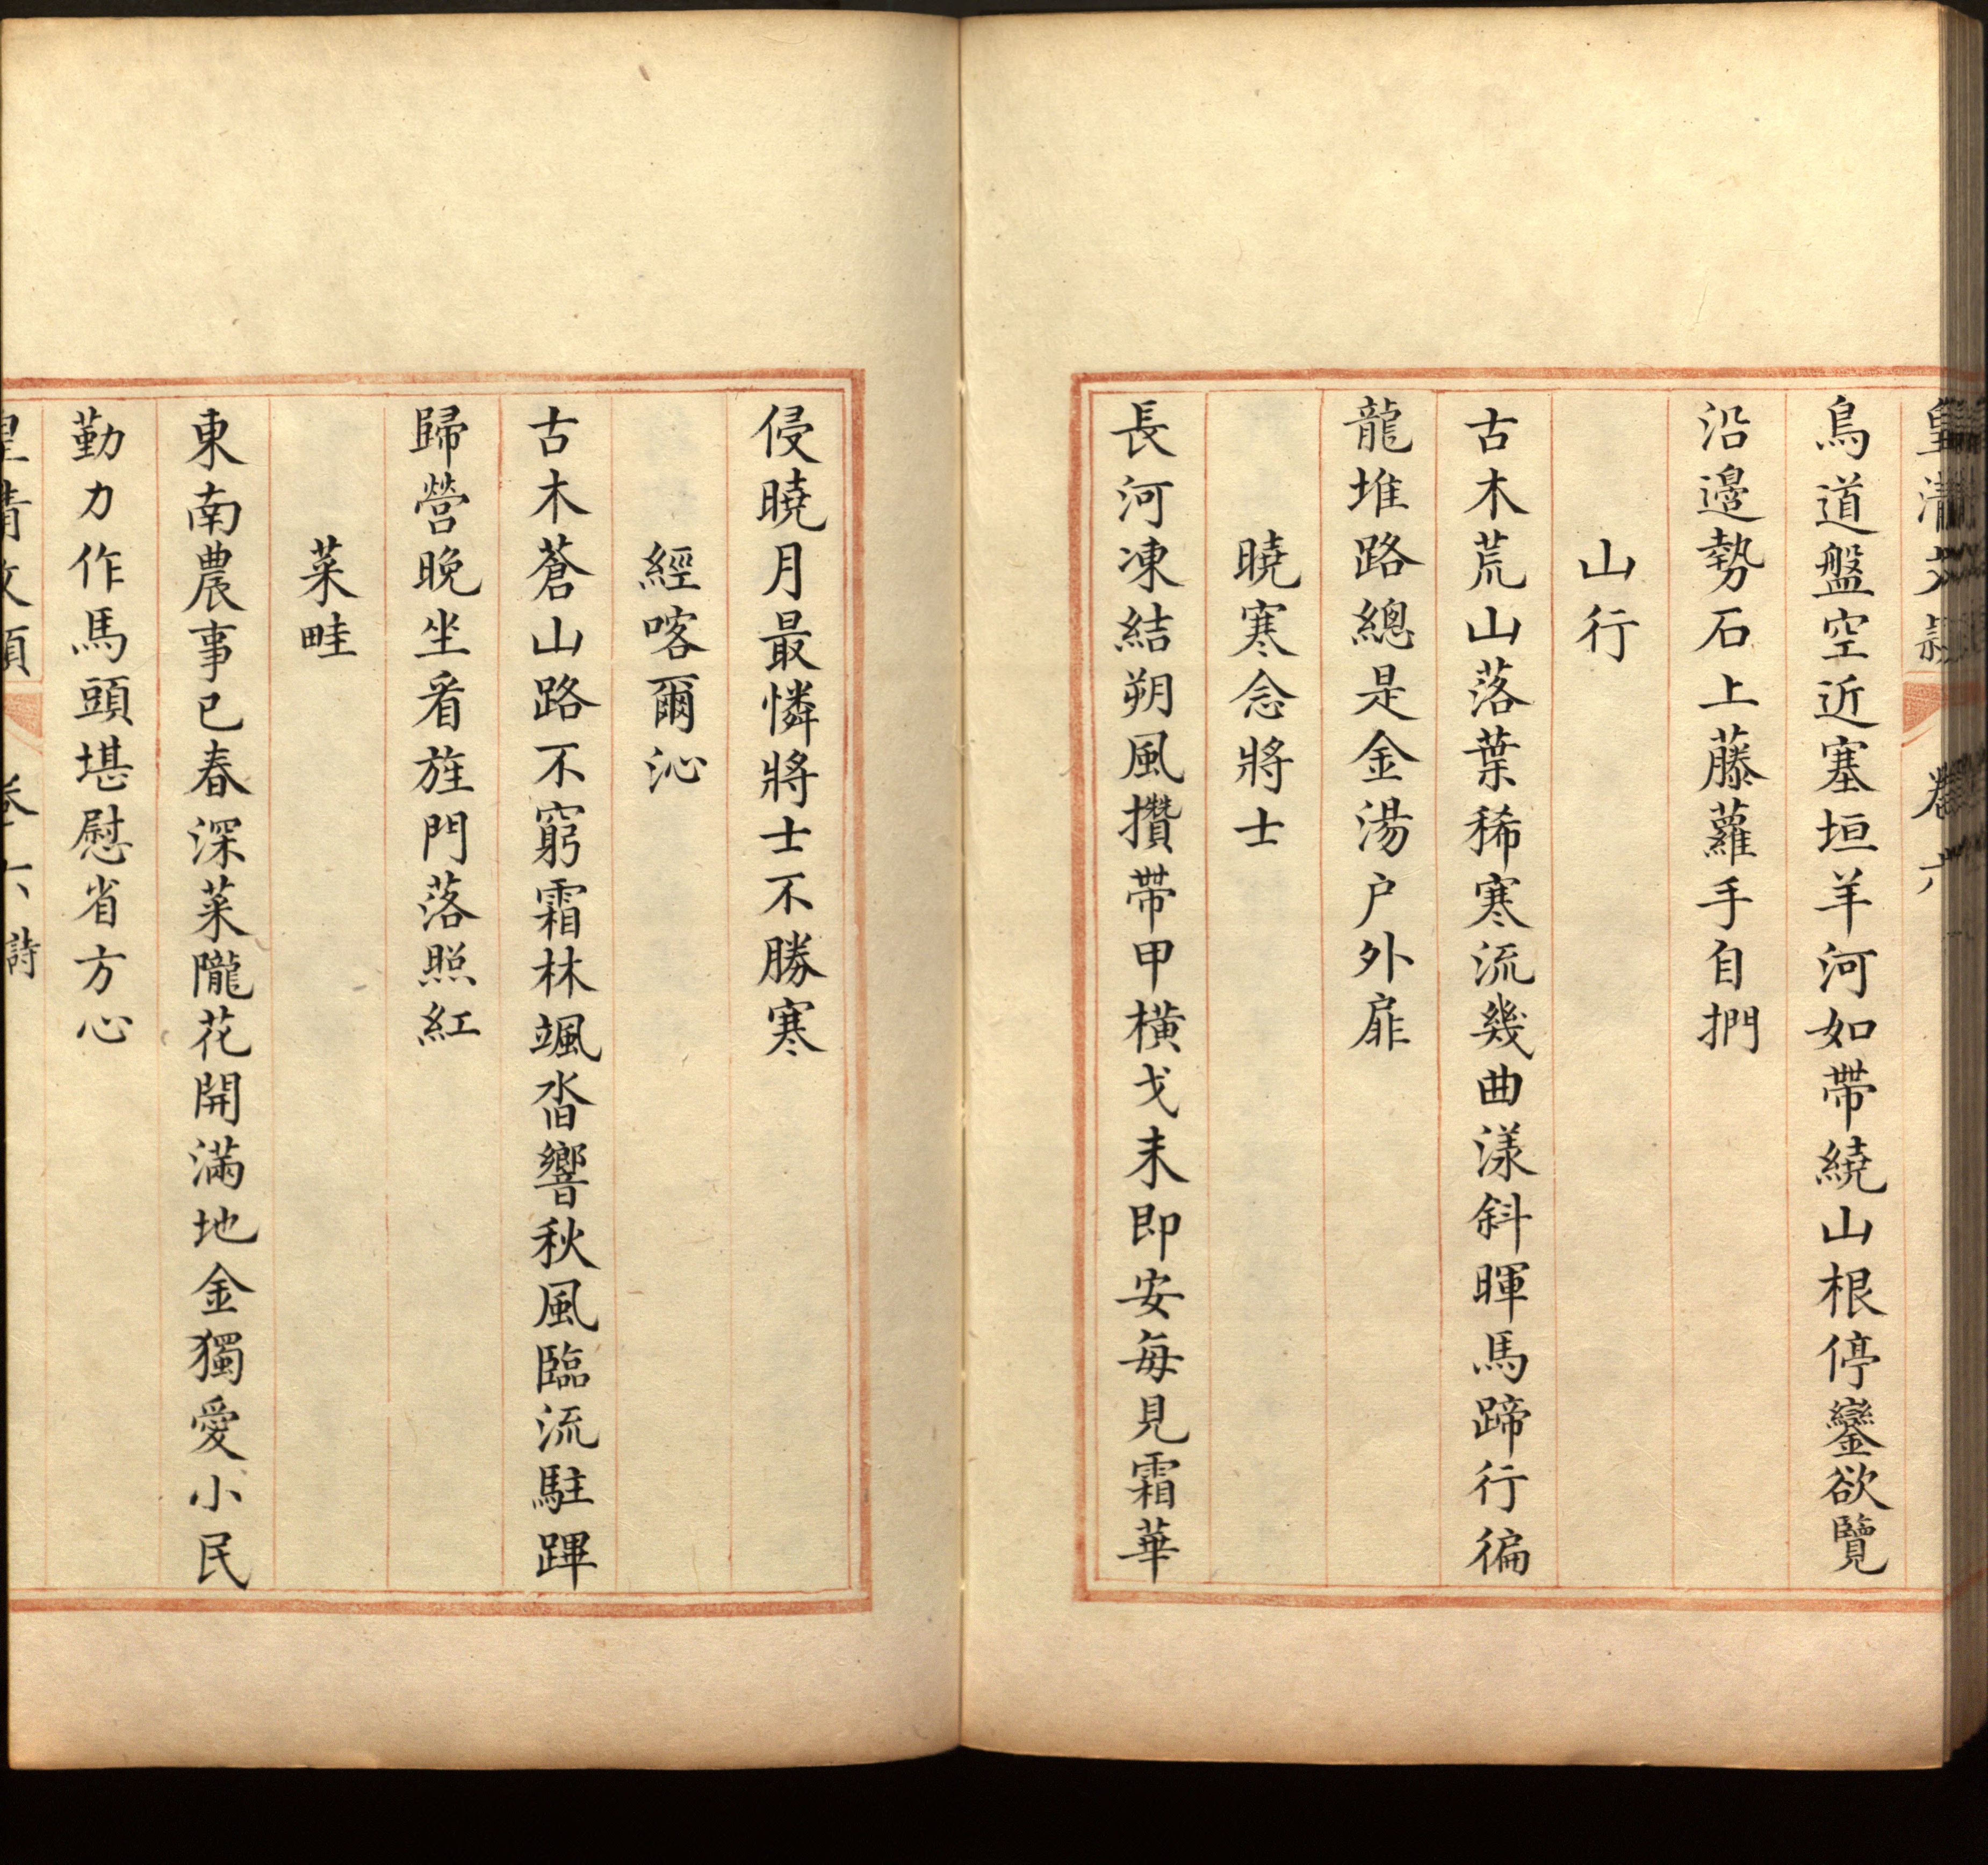 皇清文穎 卷六
鳥道盤空近塞垣羊河如帶繞山根停鑾欲覽
沿邊勢石上藤蘿手自捫
山行
古木荒山落葉稀寒流幾曲漾斜暉馬蹄行徧
龍堆路總是金湯户外扉
曉寒念將士
長河凍結朔風攢帶甲橫戈未即安每見霜華
侵曉月最憐將士不勝寒
經喀爾沁
古木蒼山路不窮霜林颯沓響秋風臨流駐蹕
歸營晚坐看旌門落照紅
菜畦
東南農事已春深菜隴花開滿地金獨愛小民
勤力作馬頭堪慰省方心
皇清文穎 卷六 詩